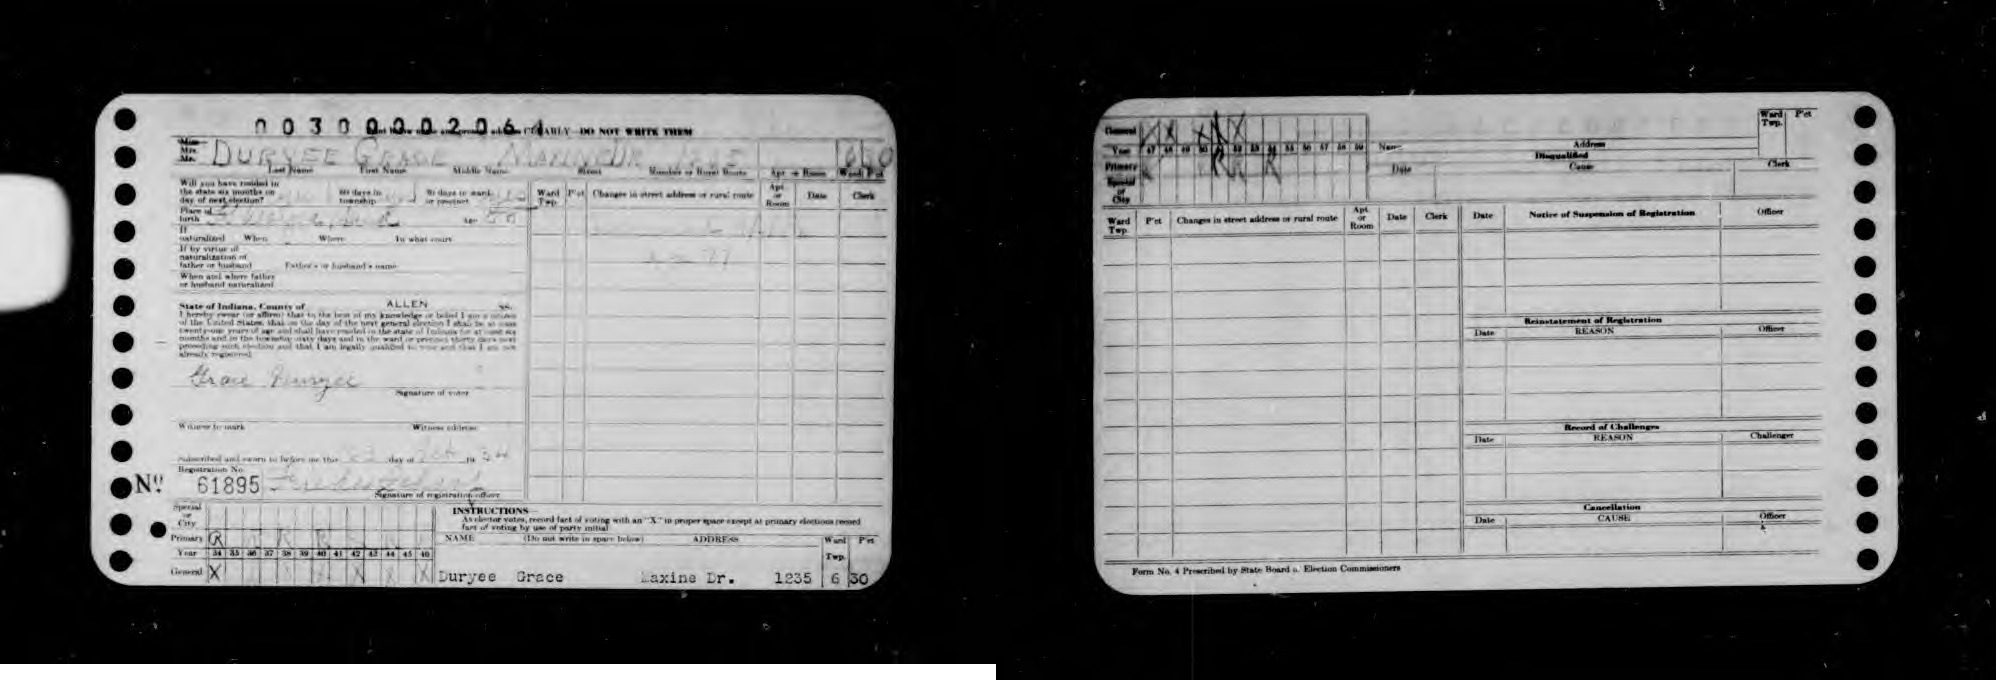 0030000206
CLEARLY DO NOT WRITE THEM
Miss
Mrs.
Mr.
DURYEE GRACE
Last Name First Name Middle Name Street Number or Rural Route Apt. or Room Ward P'ct
Will you have resided in
the state six months on
day of next election? 60 days in township 30 days in ward or precinct
Place of
birth Age
If
naturalized When Where In what court
If by virtue of
naturalization of
father or husband Father's or husband's name
When and where father
or husband naturalized
State of Indiana, County of ALLEN ss.
I hereby swear (or affirm) that to the best of my knowledge or belief I am a citizen
of the United States, that on the day of the next general election I shall be at least
twenty-one years of age and shall have resided in the state of Indiana for at least six
months and in the township sixty days and in the ward or precinct thirty days next
preceding such election and that I am legally qualified to vote and that I am not
already registered.
Grace Duryee
Signature of voter
Witness to mark Witness address
Subscribed and sworn to before me this day of 19
Registration No.
No. 61895
Signature of registration officer
Ward Twp. P'ct Changes in street address or rural route Apt. or Room Date Clerk
Special
or
City
Primary R
Year 34 35 36 37 38 39 40 41 42 43 44 45 46
General X
INSTRUCTIONS
As elector votes, record fact of voting with an "X" in proper space except at primary elections record
fact of voting by use of party initial
NAME (Do not write in space below) ADDRESS Ward Twp. P'ct
Duryee Grace Maxine Dr. 1235 6 30
General X X X X X
Year 47 48 49 50 51 52 53 54 55 56 57 58 59
Primary R R R
Special
or
City
Name Address
Disqualified
Date Cause Clerk
Ward Twp. P'ct
Ward Twp. P'ct Changes in street address or rural route Apt. or Room Date Clerk
Date Notice of Suspension of Registration Officer
Reinstatement of Registration
Date REASON Officer
Record of Challenges
Date REASON Challenger
Cancellation
Date CAUSE Officer
Form No. 4 Prescribed by State Board of Election Commissioners